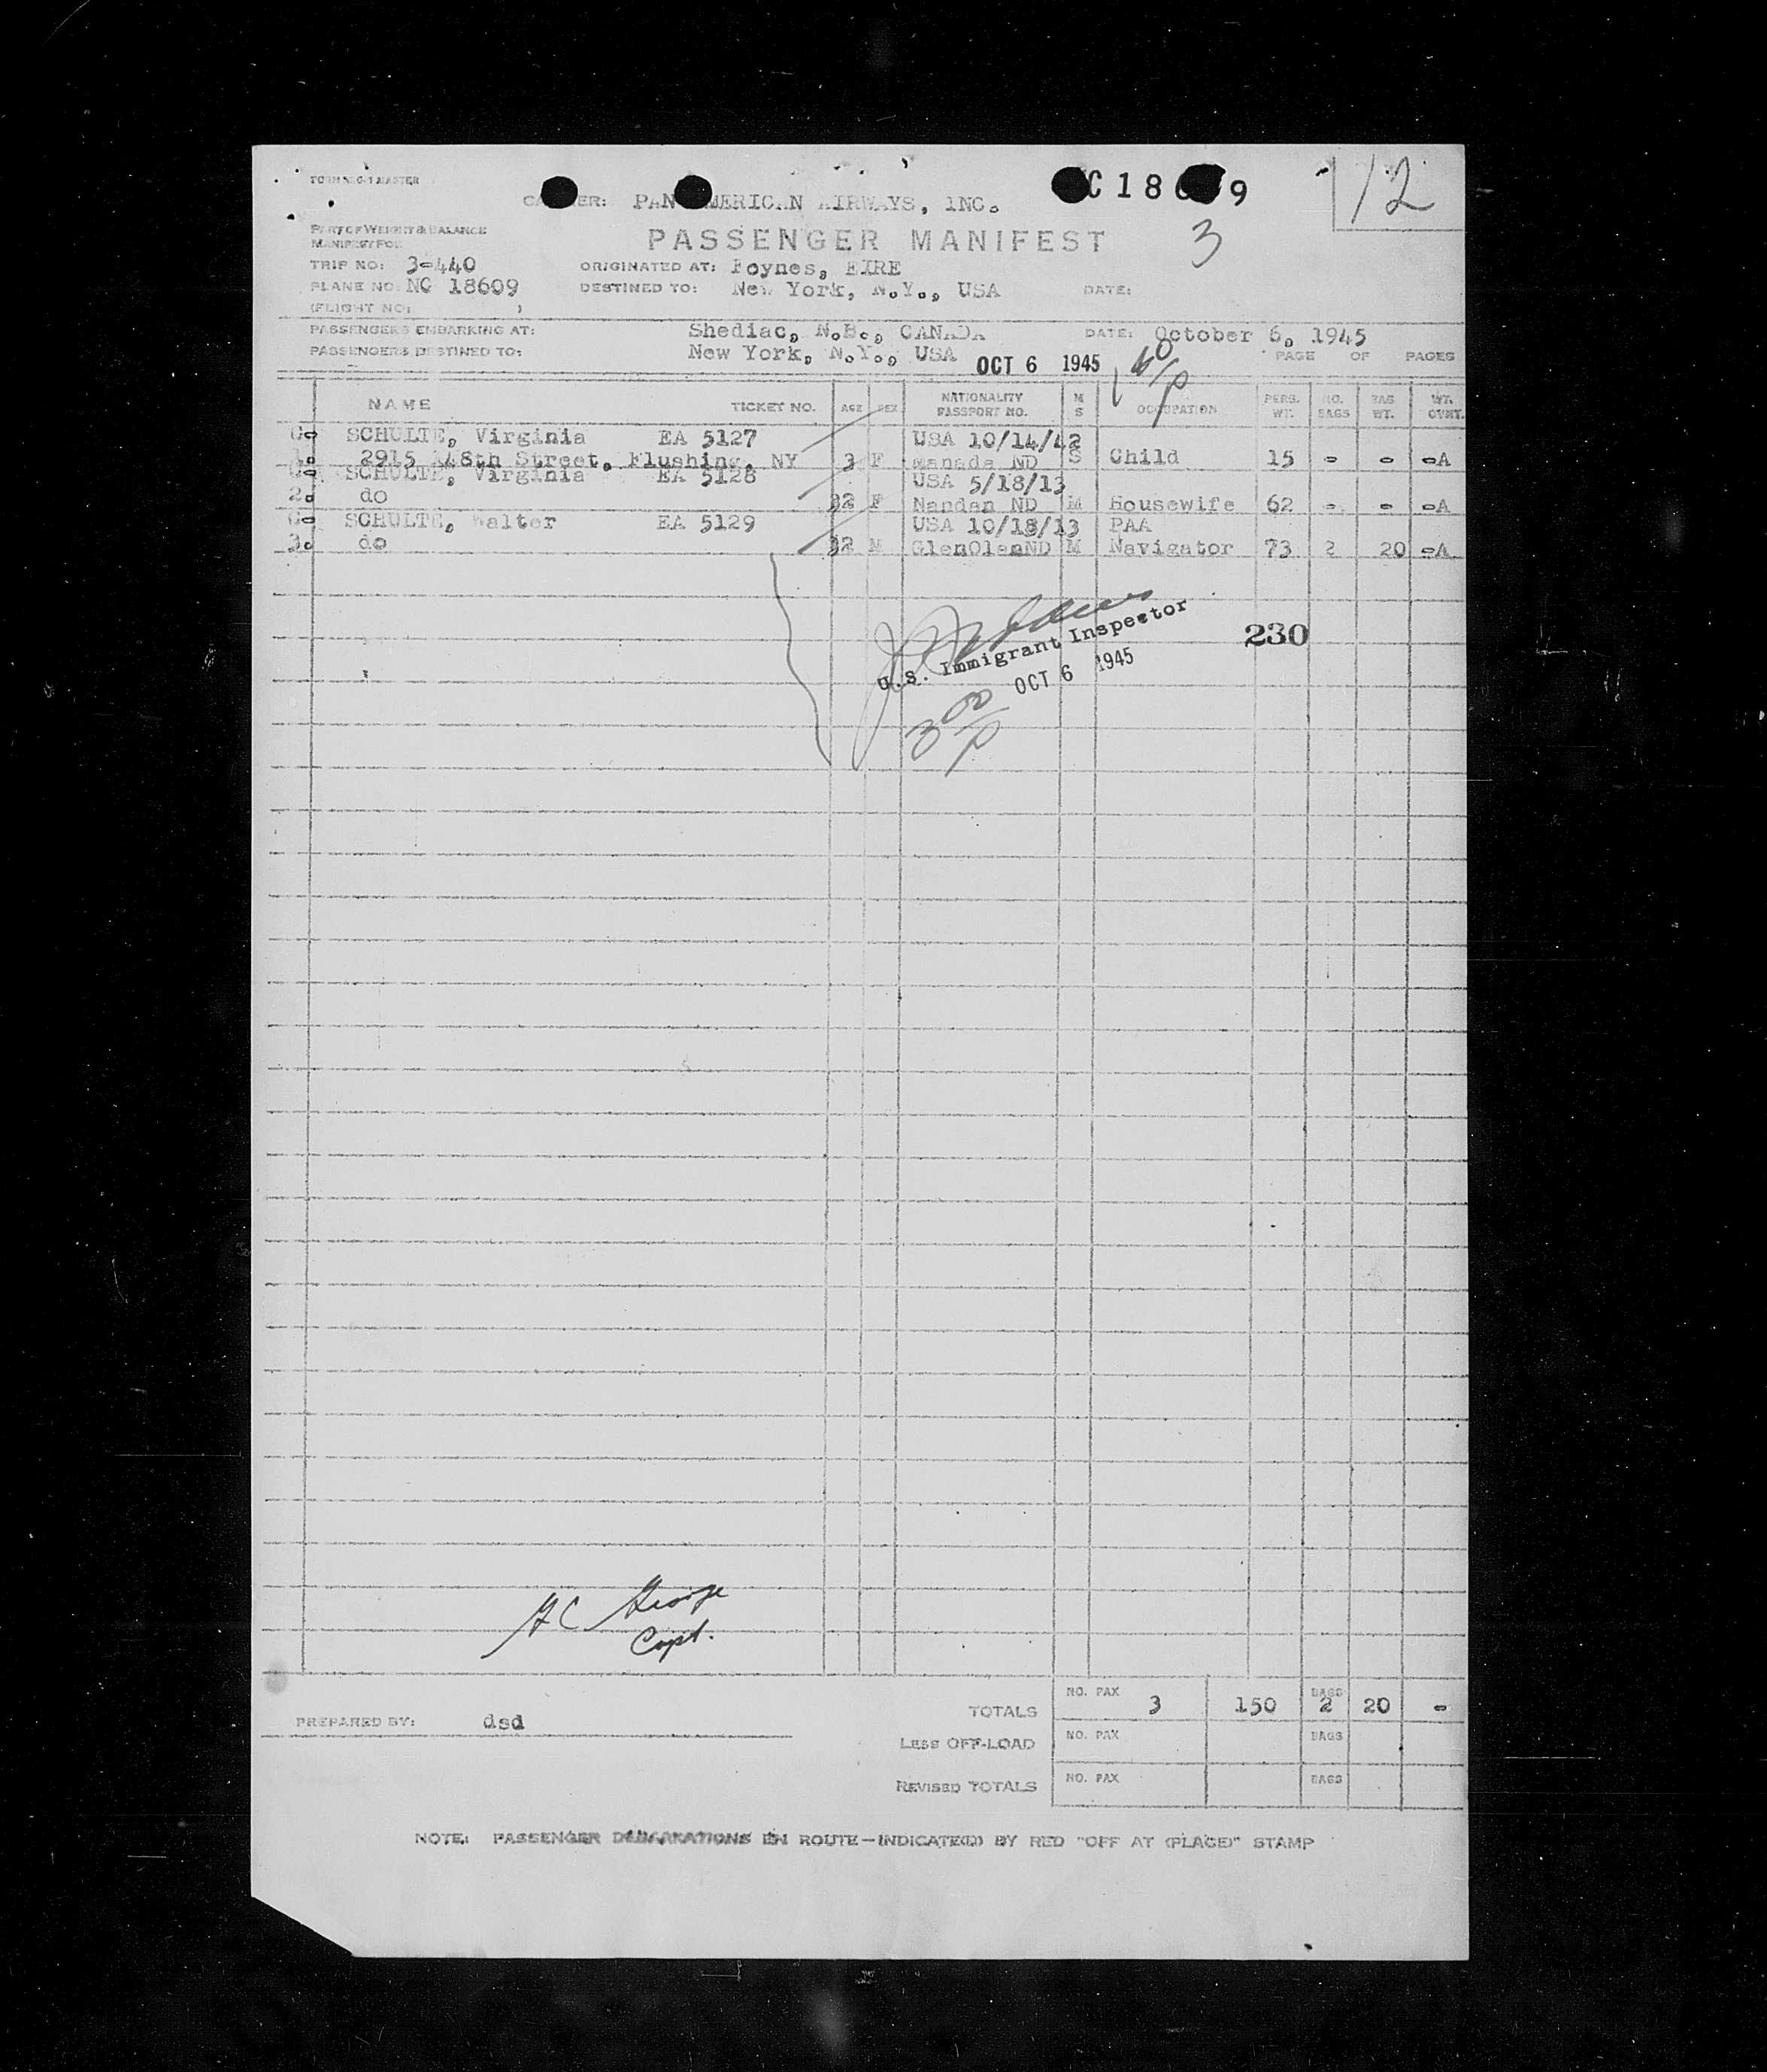 FORM NEG-1 MASTER
CARRIER: PAN AMERICAN AIRWAYS, INC.
NC 18609
12
PART OF WEIGHT & BALANCE
MANIFEST FOR
PASSENGER MANIFEST
3
TRIP NO: 3-440
ORIGINATED AT: Foynes, EIRE
PLANE NO: NC 18609
DESTINED TO: New York, N.Y., USA
DATE:
(FLIGHT NO: )
PASSENGERS EMBARKING AT: Shediac, N.B., CANADA
DATE: October 6, 1945
PASSENGERS DESTINED TO: New York, N.Y., USA
OCT 6 1945
PAGE OF PAGES
NAME TICKET NO. AGE SEX NATIONALITY PASSPORT NO. M S OCCUPATION PERS. WT. NO. BAGS BAG WT. WT. OVHT.
SCHULTE, Virginia EA 5127 USA 10/14/42
1. 2915 148th Street, Flushing, NY 3 F Manada ND S Child 15 - - -A
SCHULTE, Virginia EA 5128 USA 5/18/13
2. do 32 F Nandan ND M Housewife 62 - - -A
SCHULTE, Walter EA 5129 USA 10/18/13 PAA
3. do 32 M GlenOlenND M Navigator 73 2 20 -A
U.S. Immigrant Inspector
230
OCT 6 1945
3 00/P
George
Capt.
TOTALS NO. PAX 3 150 BAGS 2 20 -
PREPARED BY: dsd
LESS OFF-LOAD NO. PAX BAGS
REVISED TOTALS NO. PAX BAGS
NOTE: PASSENGER DEBARKATIONS EN ROUTE—INDICATE(D) BY RED "OFF AT (PLACE)" STAMP